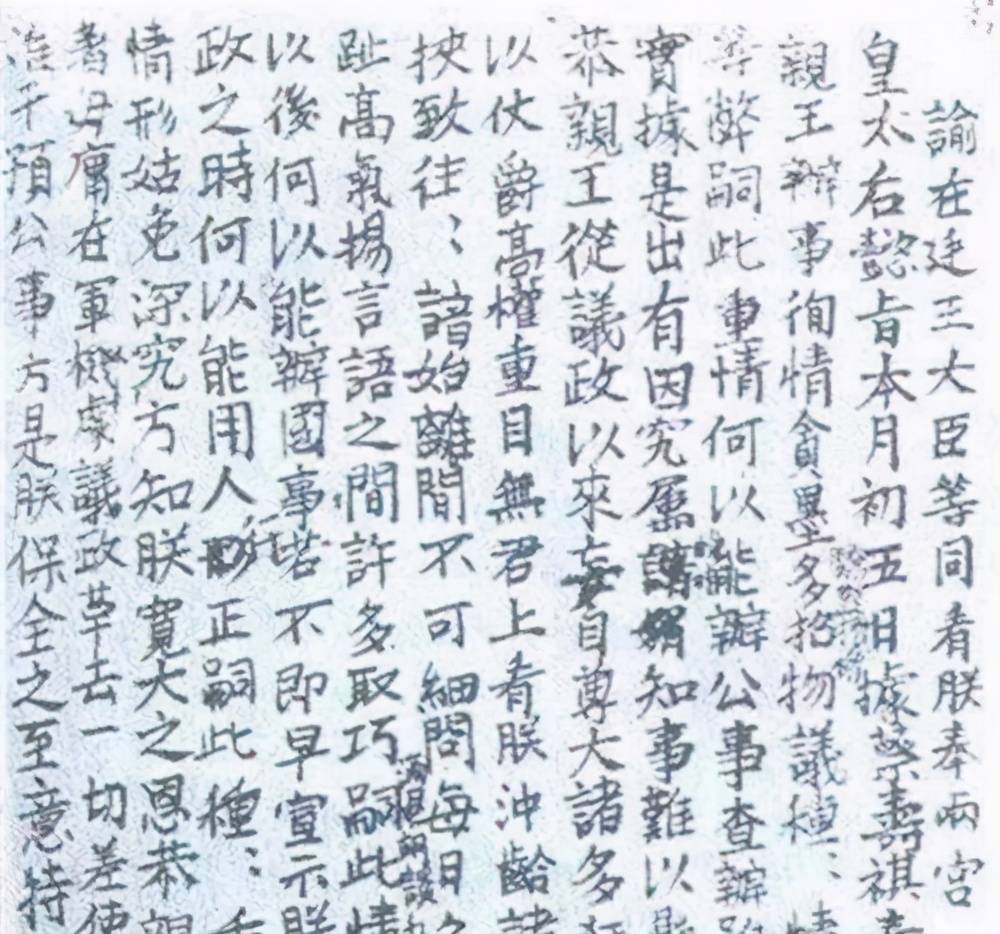 諭在廷王大臣等同看朕奉兩宮
皇太后懿旨本月初五日據蔡壽祺
親王辦事徇情貪墨多招物議種：情
等弊嗣此重情何以能辦公事查辦
實據是出有因究属知事難以
恭親王從議政以來妄自尊大諸多
以仗爵高權重目無君上看朕沖齡諸
挾致往：諳始離間不可細問每日
趾高氣揚言語之間許多取巧嗣此情
以後何以能辦國事若不即早宣示朕
政之時何以能用人行正嗣此種：
情形姑免深究方知朕寬大之恩恭親
著毋庸在軍機處議政革去一切差使
准干預公事方是朕保全之至意特